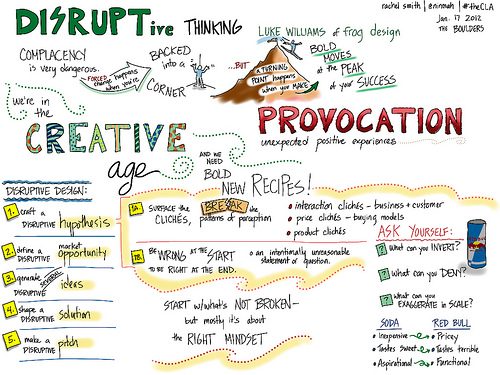 DISRUPTive THINKING
LUKE WILLIAMS of frog design
rachel smith | @ninmah | #theCLA
Jan. 17 2012
THE BOULDERS
COMPLACENCY
is very dangerous.
FORCED
change happens
when you're
BACKED
into a
CORNER
...BUT
A TURNING
POINT happens
when you MAKE
BOLD
MOVES
at the PEAK
of your SUCCESS
we're in
the
CREATIVE
age
PROVOCATION
unexpected positive experiences
AND WE
NEED
BOLD
NEW RECIPES!
DISRUPTIVE DESIGN:
1. craft a
DISRUPTIVE hypothesis
2. define a market
DISRUPTIVE opportunity
3. generate SEVERAL
DISRUPTIVE ideas
4. shape a
DISRUPTIVE solution
5. make a
DISRUPTIVE pitch
1A. SURFACE the
CLICHÉS,
BREAK the
patterns of perception
interaction clichés - business + customer
price clichés - buying models
product clichés
1B. BE WRONG AT THE START
TO BE RIGHT AT THE END.
an intentionally unreasonable
statement or question.
START w/what's NOT BROKEN-
but mostly it's about
the RIGHT MINDSET
ASK YOURSELF:
? what can you INVERT?
? what can you DENY?
? what can you
EXAGGERATE in SCALE?
SODA RED BULL
Inexpensive Pricey
Tastes Sweet Tastes terrible
Aspirational Functional